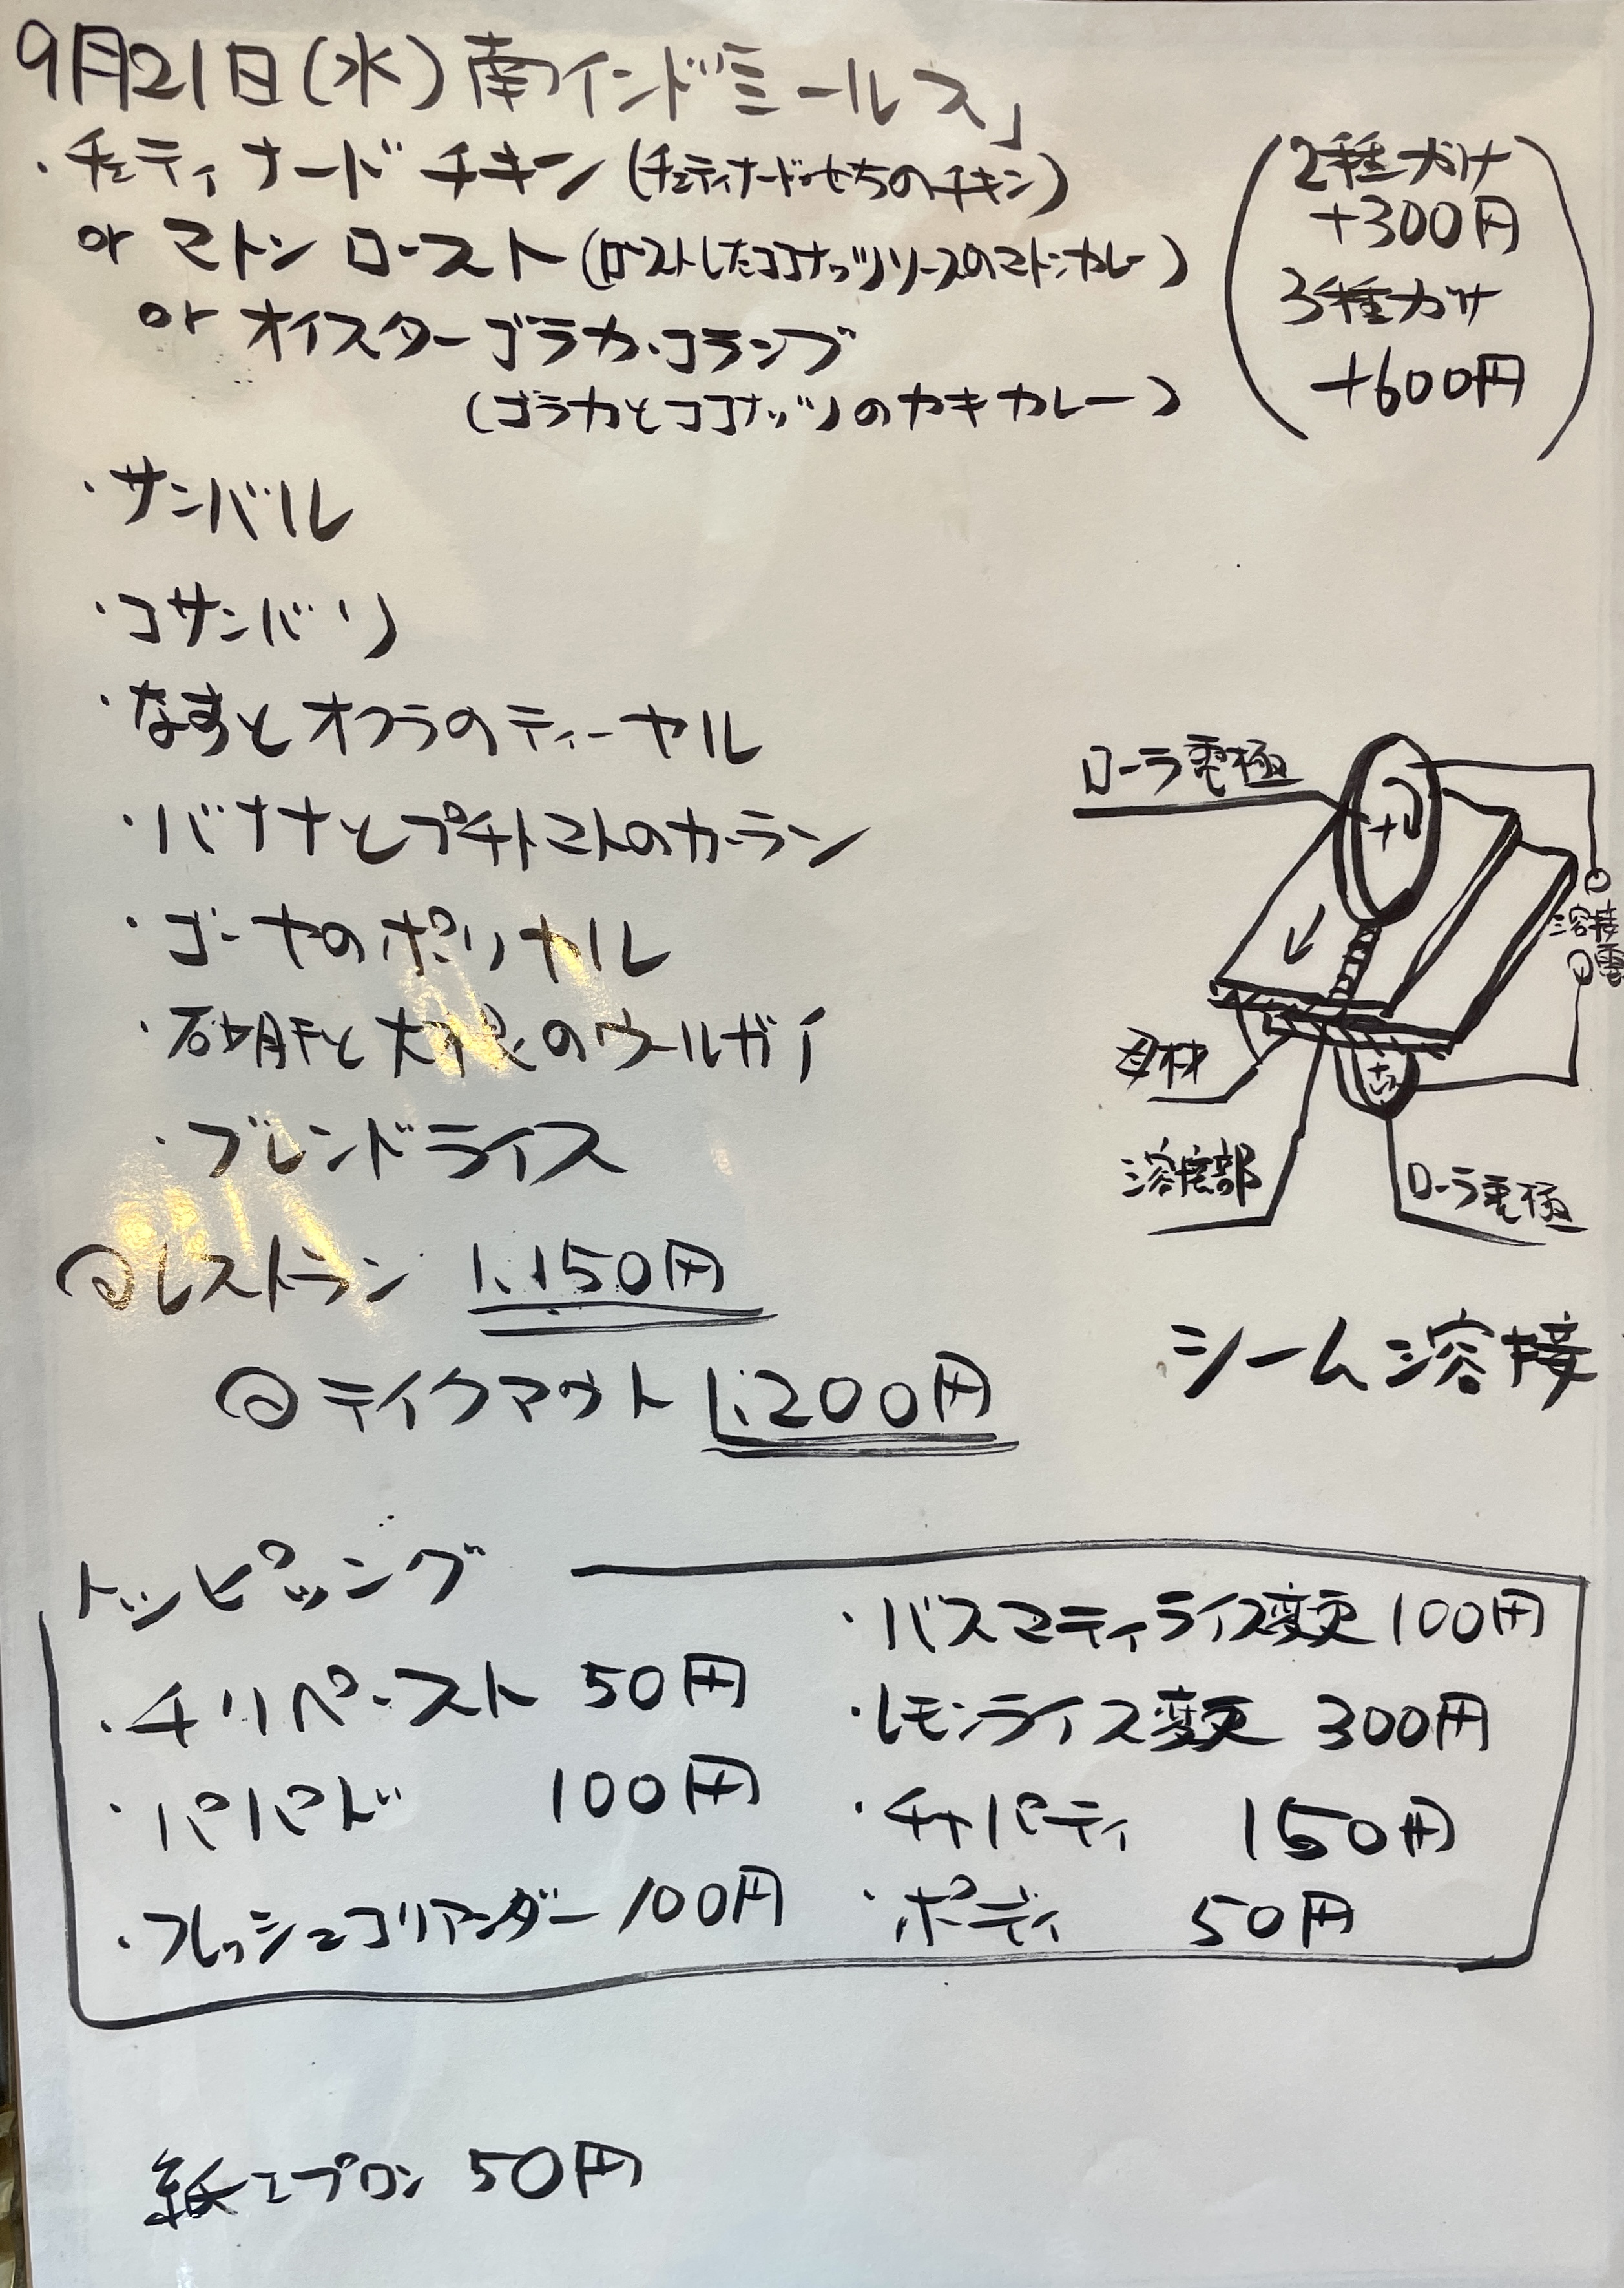 9月21日(水)南インド「ミールス」
・チェティナードチキン(チェティナードせちのチキン)
or マトンロースト(ローストしたココナッツソースのマトンカレー)
or オイスターゴラカ・コランブ
(ゴラカとココナッツのカキカレー)
(2種がけ
+300円
3種がけ
+600円)
・サンバル
・コサンバリ
・なすとオクラのティーヤル
・バナナとプチトマトのカーラン
・ゴーヤのポリヤル
・砂肝と大根のウールガイ
・ブレンドライス
@レストラン 1,150円
@テイクアウト 1,200円
ローラ電極
溶接
電
母材
溶底部
ローラ電極
シーム溶接
トッピング
・チリペースト 50円
・パパド 100円
・フレッシュコリアンダー 100円
・バスマティライス変更 100円
・レモンライス変更 300円
・チャパティ 150円
・ポディ 50円
紙エプロン 50円